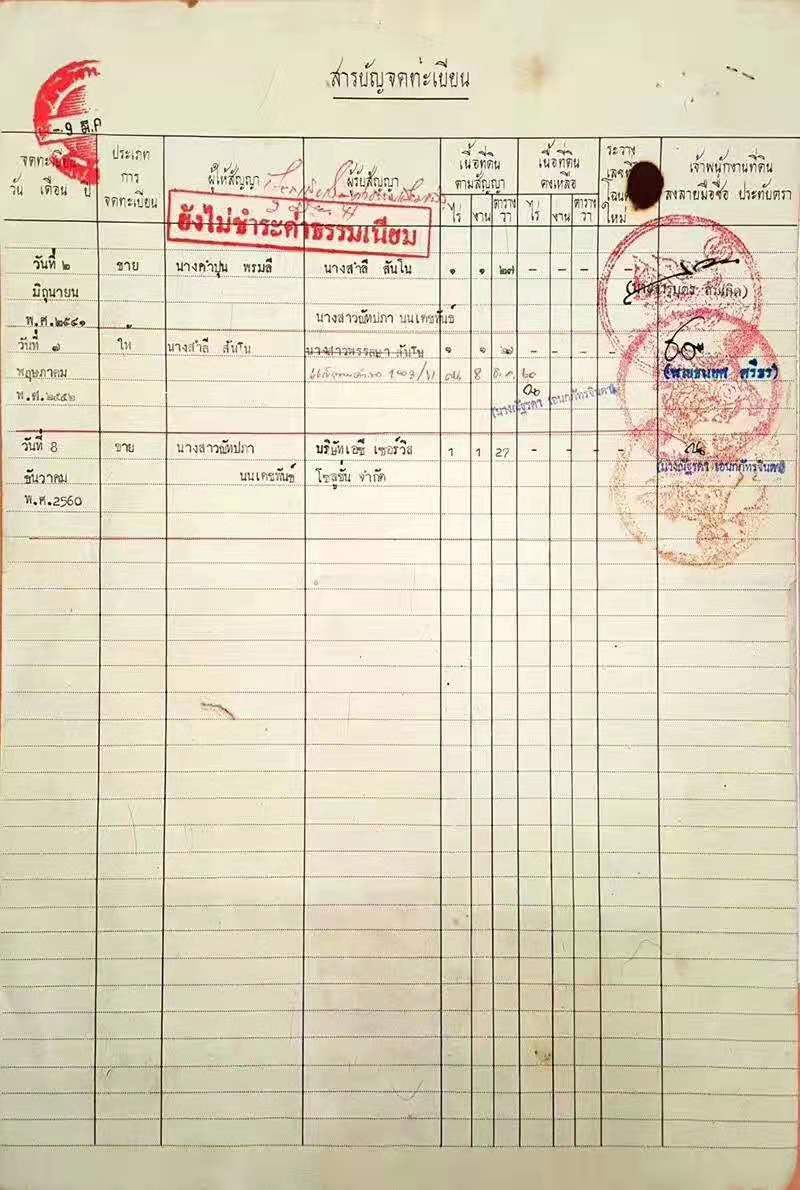 สารบัญจดทะเบียน
-9 มี.ค
จดทะเบียน วัน เดือน ปี
ประเภทการจดทะเบียน
ผู้ให้สัญญา
ผู้รับสัญญา
เนื้อที่ดินตามสัญญา
ไร่ งาน ตารางวา
เนื้อที่ดินคงเหลือ
ไร่ งาน ตารางวา
ระวาง
ใหม่
เจ้าพนักงานที่ดิน
ลงลายมือชื่อ ประทับตรา
ยังไม่ชำระค่าธรรมเนียม
วันที่ ๒ ขาย นางคำปุน พรมลี นางสำลี สันโน ๑ ๑ ๒๗ - - - -
มิถุนายน
พ.ศ.๒๕๔๑
วันที่ ๗ ให้ นางสำลี สันโน นางสาวพรรลษา สันโน ๑ ๑ ๒๗ - - - -
นางสาวณัทปภา นนเตชทันธ์
พฤษภาคม
8 ธ.ค. ๖๐
พ.ศ.๒๕๕๒
วันที่ 8 ขาย นางสาวณัทปภา บริษัทเอซี เซอร์วิส 1 1 27 - - - -
ธันวาคม นนเตชทันธ์ โซลูชั่น จำกัด
พ.ศ.2560